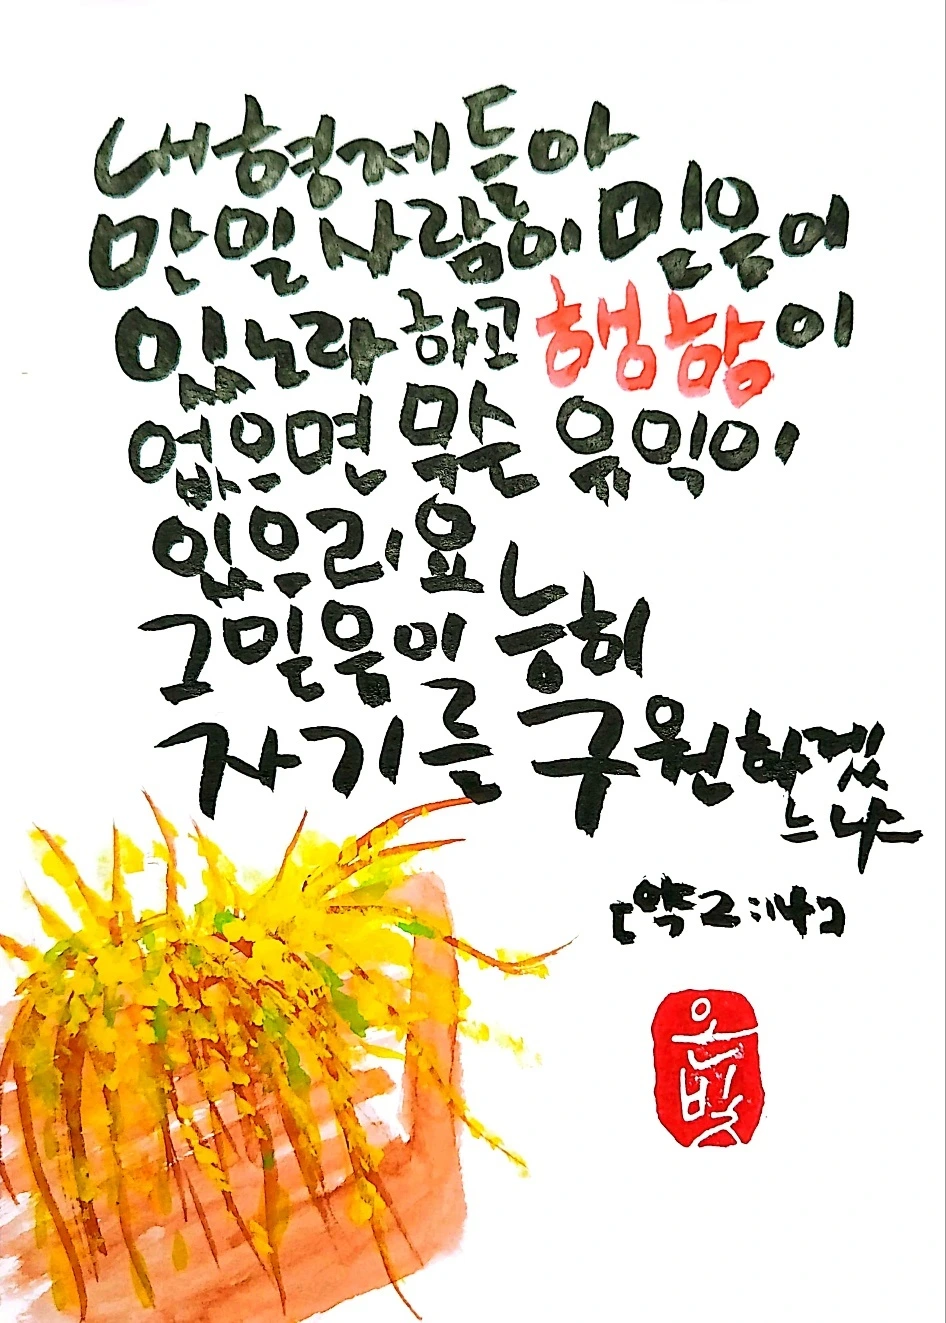 내 형제들아
만일 사람이 믿음이
있노라 하고 행함이
없으면 무슨 유익이
있으리요
그 믿음이 능히
자기를 구원하겠
느냐
[약2:14]
은빛